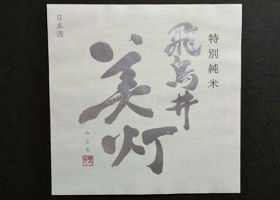 特別純米
飛鳥井
美灯
日本酒